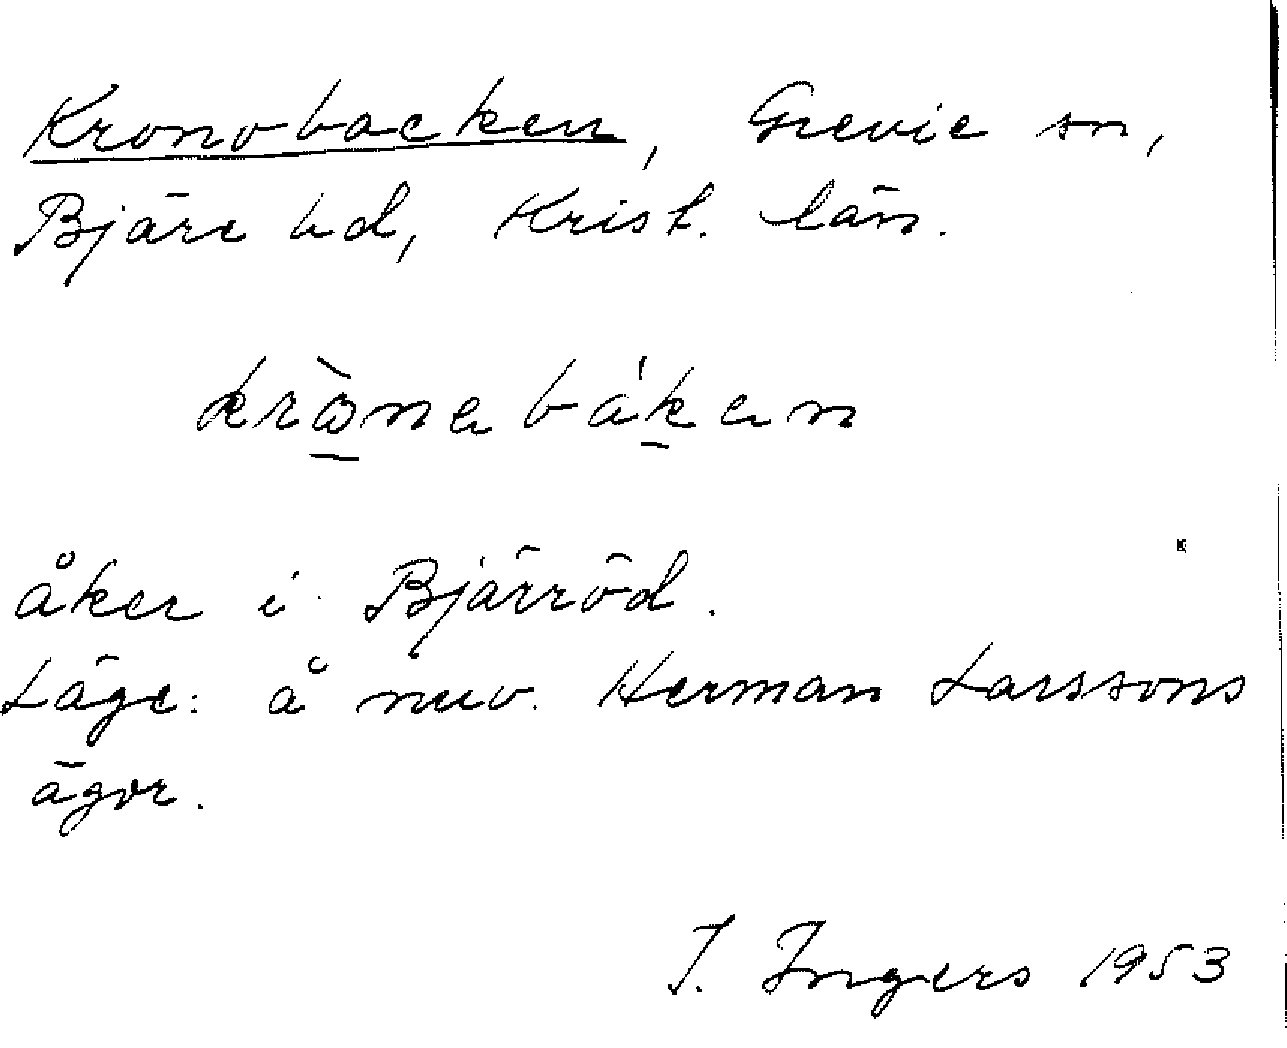 Kronobacken, Grevie sn,
Bjäre hd, Krist. län.
krònabákan
åker i Bjärröd.
Läge: å nuv. Herman Larssons
ägor.
I. Ingers 1953